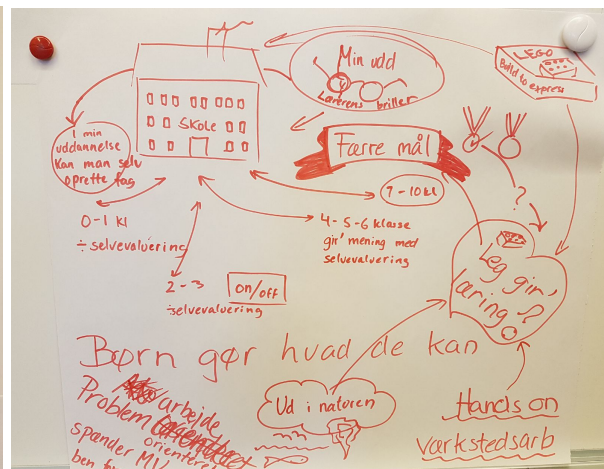 Min udd
Lærerens briller
LEGO
Build to express
SKOLE
I min
uddannelse
kan man selv
oprette fag
Færre mål
7-10 kl
0-1 kl
÷ selvevaluering
4-5-6 klasse
gir' mening med
selvevaluering
2-3
on/off
÷selvevaluering
?
Leg gir'
læring?
Børn gør hvad de kan
arbejde
Problem
orienteret
spænder
ben
Ud i naturen
Hands on
værkstedsarb